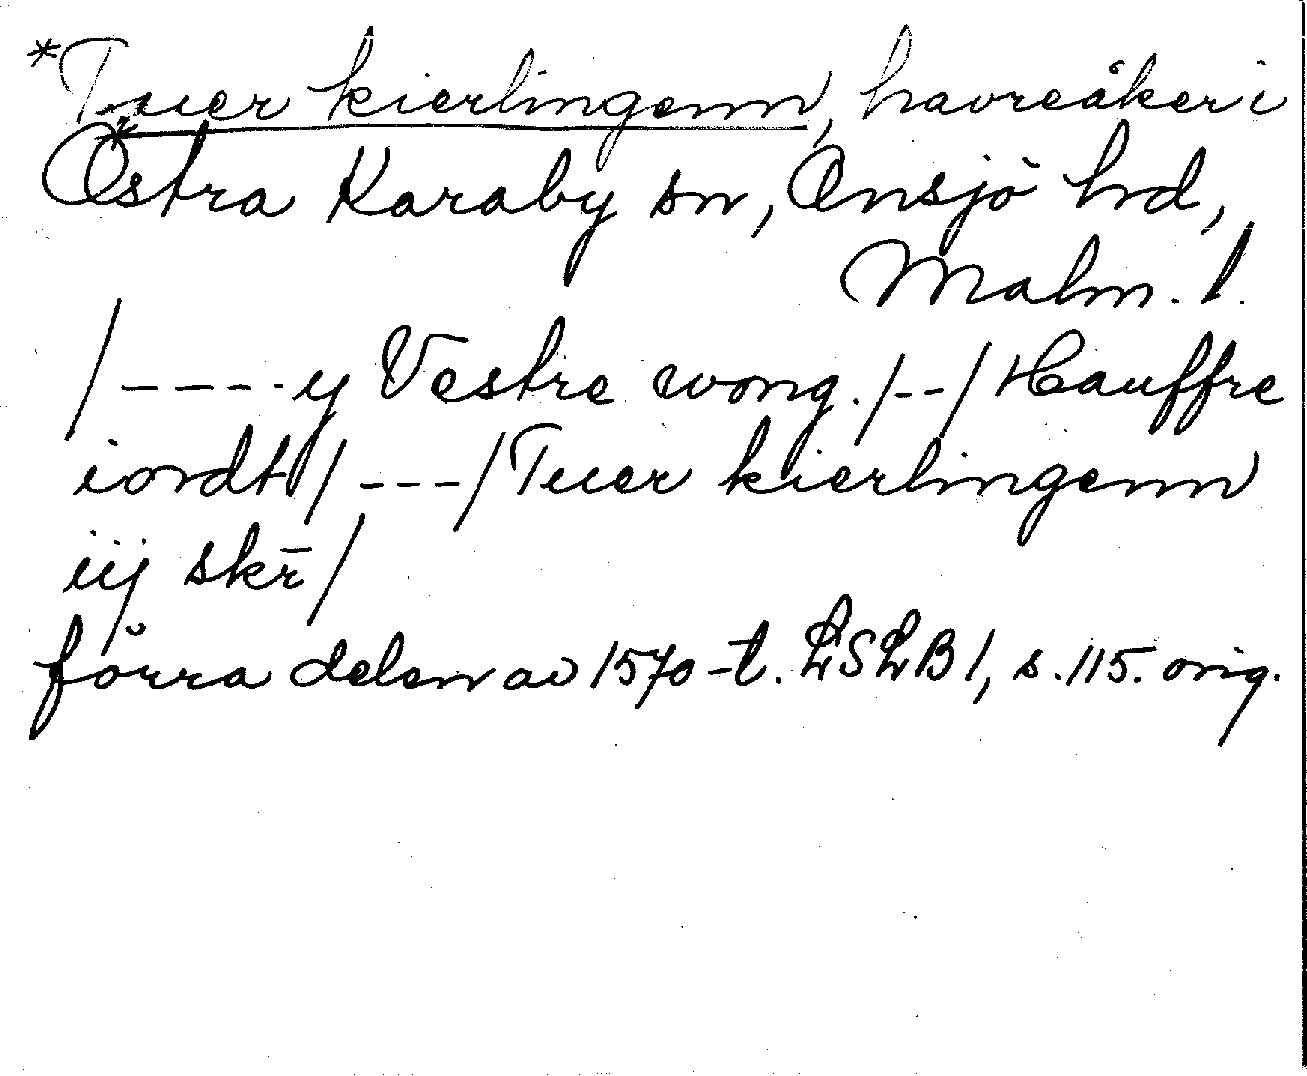 *Tuer kierlingenn, havreåker i
Östra Karaby sn, Onsjö hd,
Malm. l.
/----y Vestre wong./--/Hauffre
iordt/---/Tuer kierlingenn
iij skr̄/
förra delen av 1570-t. LSLB 1, s. 115. orig.